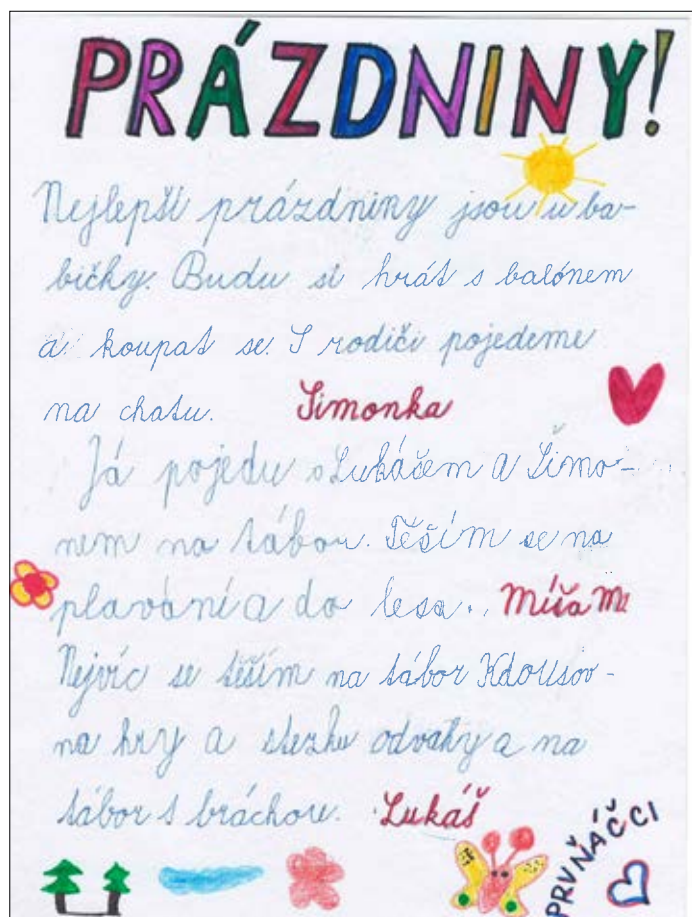 PRÁZDNINY!
Nejlepší prázdniny jsou u ba-
bičky. Budu si hrát s balónem
a koupat se. S rodiči pojedeme
na chatu. Simonka
Já pojedu s Lukášem a Šimo-
nem na tábor. Těším se na
plavání a do lesa. Míša M.
Nejvíc se těším na tábor Kdousov -
na hry a stezku odvahy a na
tábor s bráchou. Lukáš
PRVŇÁČCI